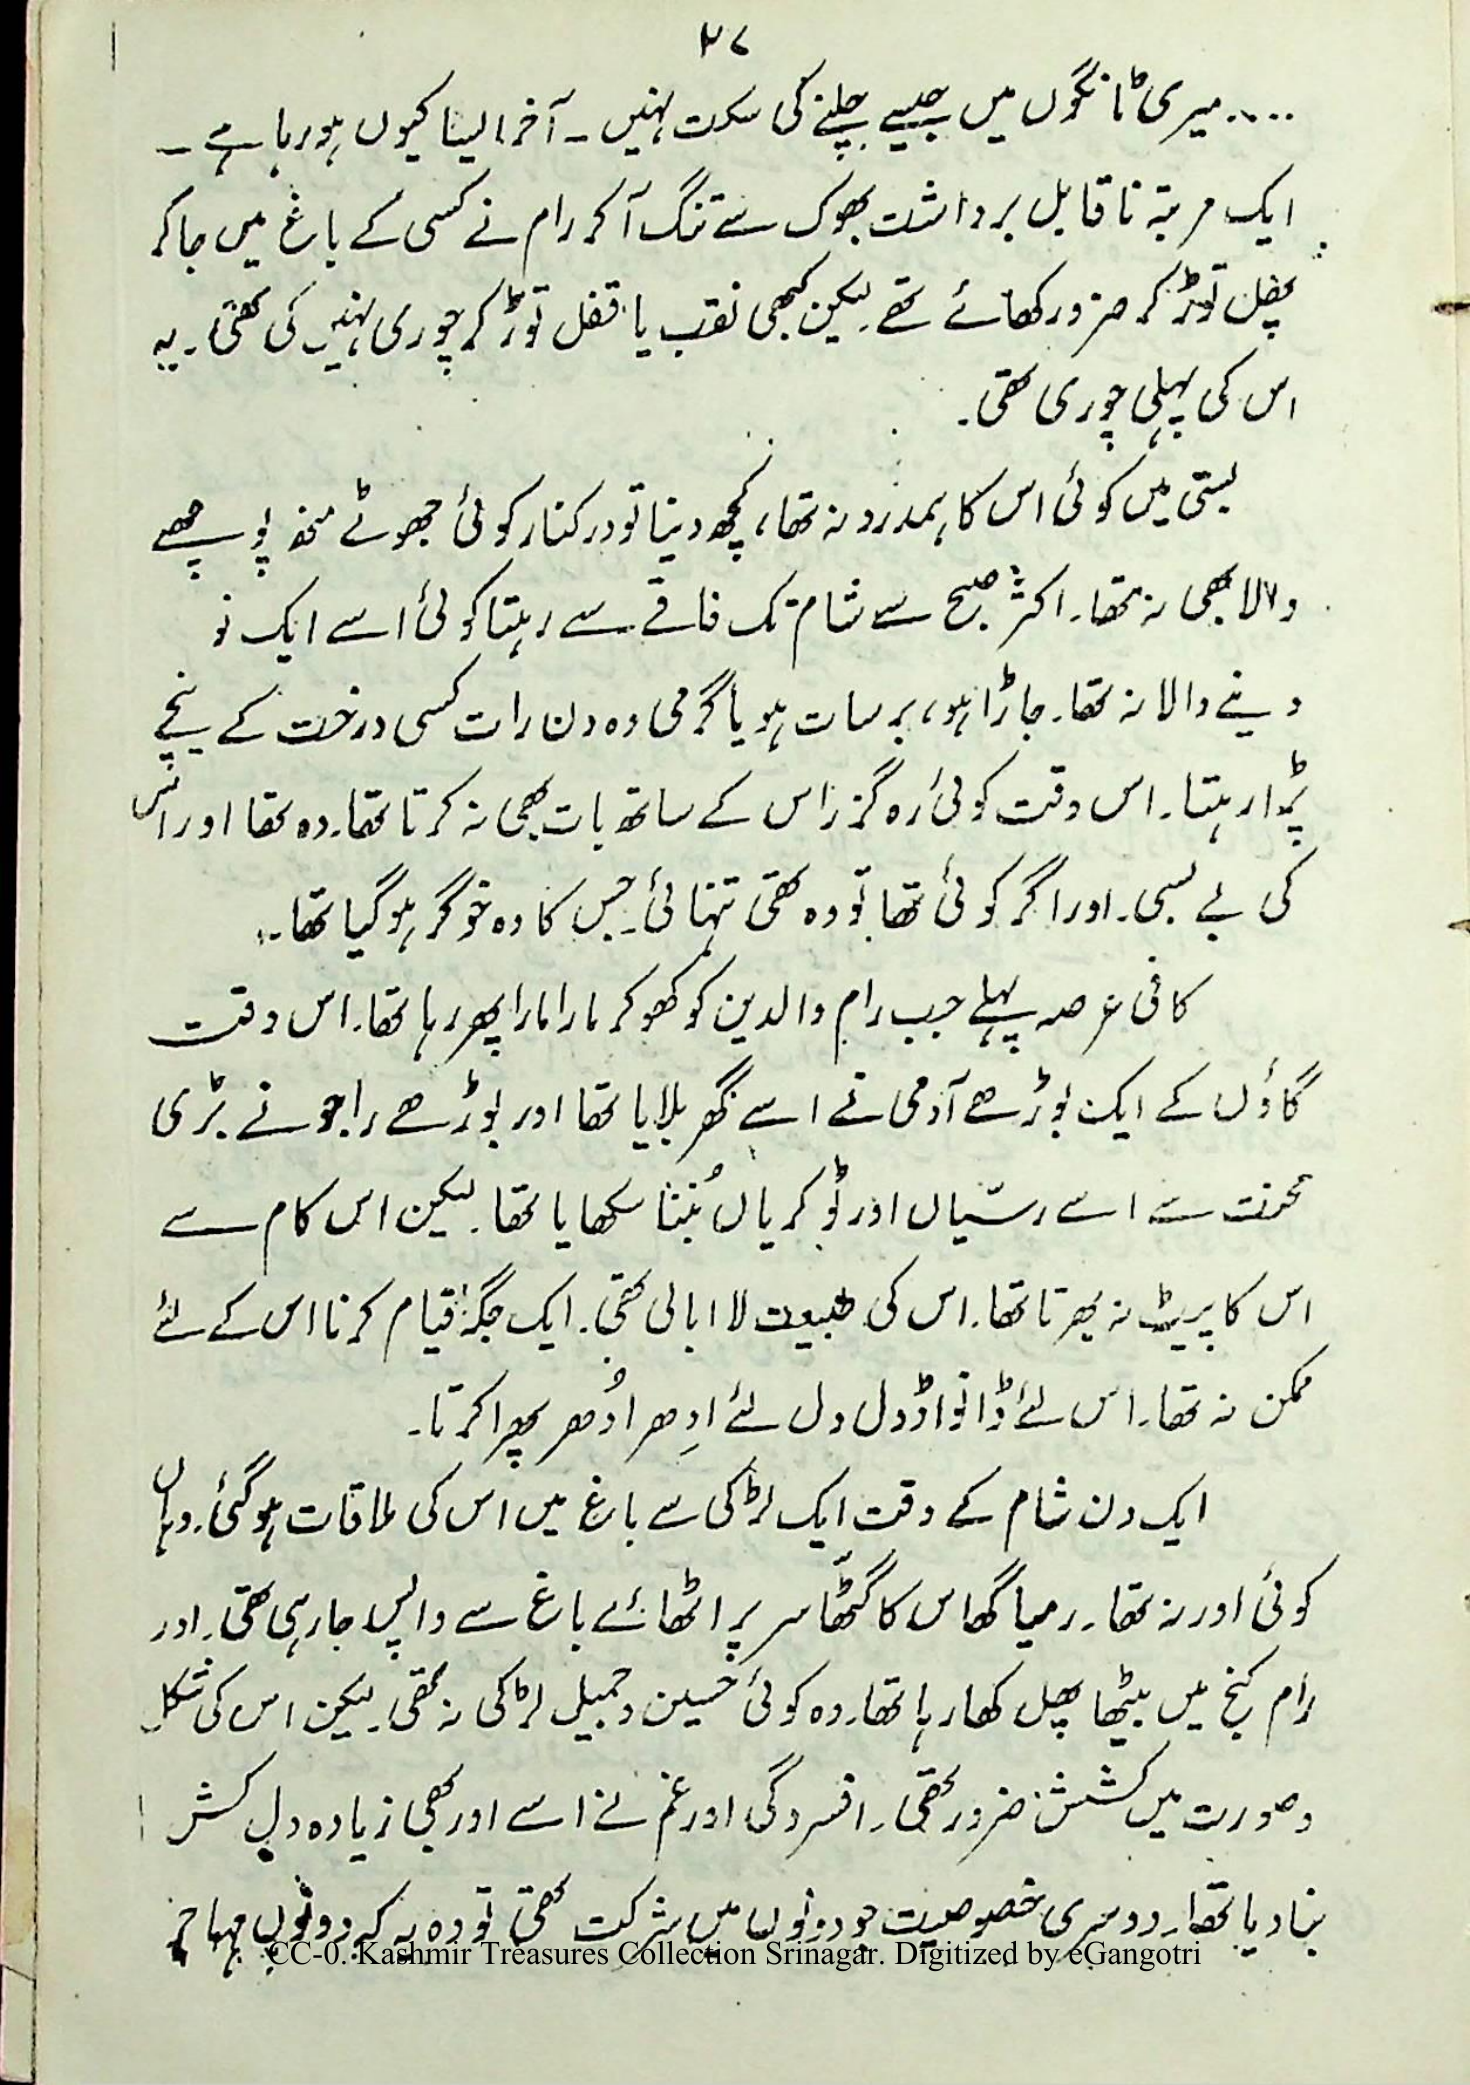 ۳۷
.... میری ٹانگوں میں جیسے چلنے کی سکت نہیں ۔ آخر ایسا کیوں ہو رہا ہے ۔
ایک مرتبہ ناقابل برداشت بھوک سے تنگ آ کر رام نے کسی کے باغ میں جا کر
پھل توڑ کر ضرور کھائے تھے۔ لیکن کبھی نقب یا قفل توڑ کر چوری نہیں کی تھی۔ یہ
اس کی پہلی چوری تھی۔
بستی میں کوئی اس کا ہمدرد نہ تھا، کچھ دینا تو درکنار کوئی جھوٹے منھ پوچھے
والا بھی نہ تھا۔ اکثر صبح سے شام تک فاقے سے رہتا کوئی اسے ایک نو
دینے والا نہ تھا۔ جاڑا ہو، برسات ہو یا گرمی وہ دن رات کسی درخت کے نیچے
پڑا رہتا۔ اس وقت کوئی رہ گزر اس کے ساتھ بات بھی نہ کرتا تھا۔ وہ تھا اور اس
کی بے بسی۔ اور اگر کوئی تھا تو وہ تھی تنہائی۔ جس کا وہ خوگر ہو گیا تھا۔
کافی عرصہ پہلے جب رام والدین کو کھو کر مارا مارا پھر رہا تھا۔ اس وقت
گاؤں کے ایک بوڑھے آدمی نے اسے گھر بلایا تھا اور بوڑھے راجو نے بڑی
محنت سے اسے رسّیاں اور ٹوکریاں بُننا سکھایا تھا۔ لیکن اس کام سے
اس کا پیٹ نہ بھرتا تھا۔ اس کی طبیعت لا ابالی تھی۔ ایک جگہ قیام کرنا اس کے لئے
ممکن نہ تھا۔ اس لئے ڈانواڈول دل لئے اِدھر اُدھر پھرا کرتا۔
ایک دن شام کے وقت ایک لڑکی سے باغ میں اس کی ملاقات ہو گئی۔ وہاں
کوئی اور نہ تھا۔ رمیا گھاس کا گٹھّا سر پر اٹھائے باغ سے واپس جا رہی تھی۔ اور
رام کنج میں بیٹھا پھل کھا رہا تھا۔ وہ کوئی حسین و جمیل لڑکی نہ تھی۔ لیکن اس کی شکل
و صورت میں کشش ضرور تھی۔ افسردگی اور غم نے اسے اور بھی زیادہ دل کش
بنا دیا تھا۔ دوسری خصوصیت جو دونوں میں شرکت تھی تو وہ یہ کہ دونوں مہاجر
CC-0. Kashmir Treasures Collection Srinagar. Digitized by eGangotri